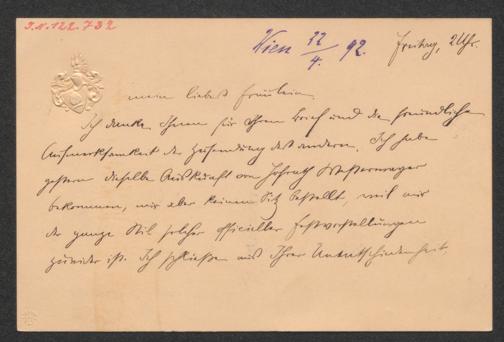 I.N. 122.732
Wien 22/4. 92.
Freitag, 2 Uhr.
mein liebes Fräulein,
Ich danke Ihnen für Ihren Brief und die freundliche
Aufmerksamkeit der Zusendung des anderen. Ich habe
gestern dieselbe Auskunft von Hofrath
bekommen, mir aber keinen Sitz bestellt, weil mir
der ganze Stil solcher officieller Festvorstellungen
zuwider ist. Ich schließe aus Ihrer Unentschiedenheit,